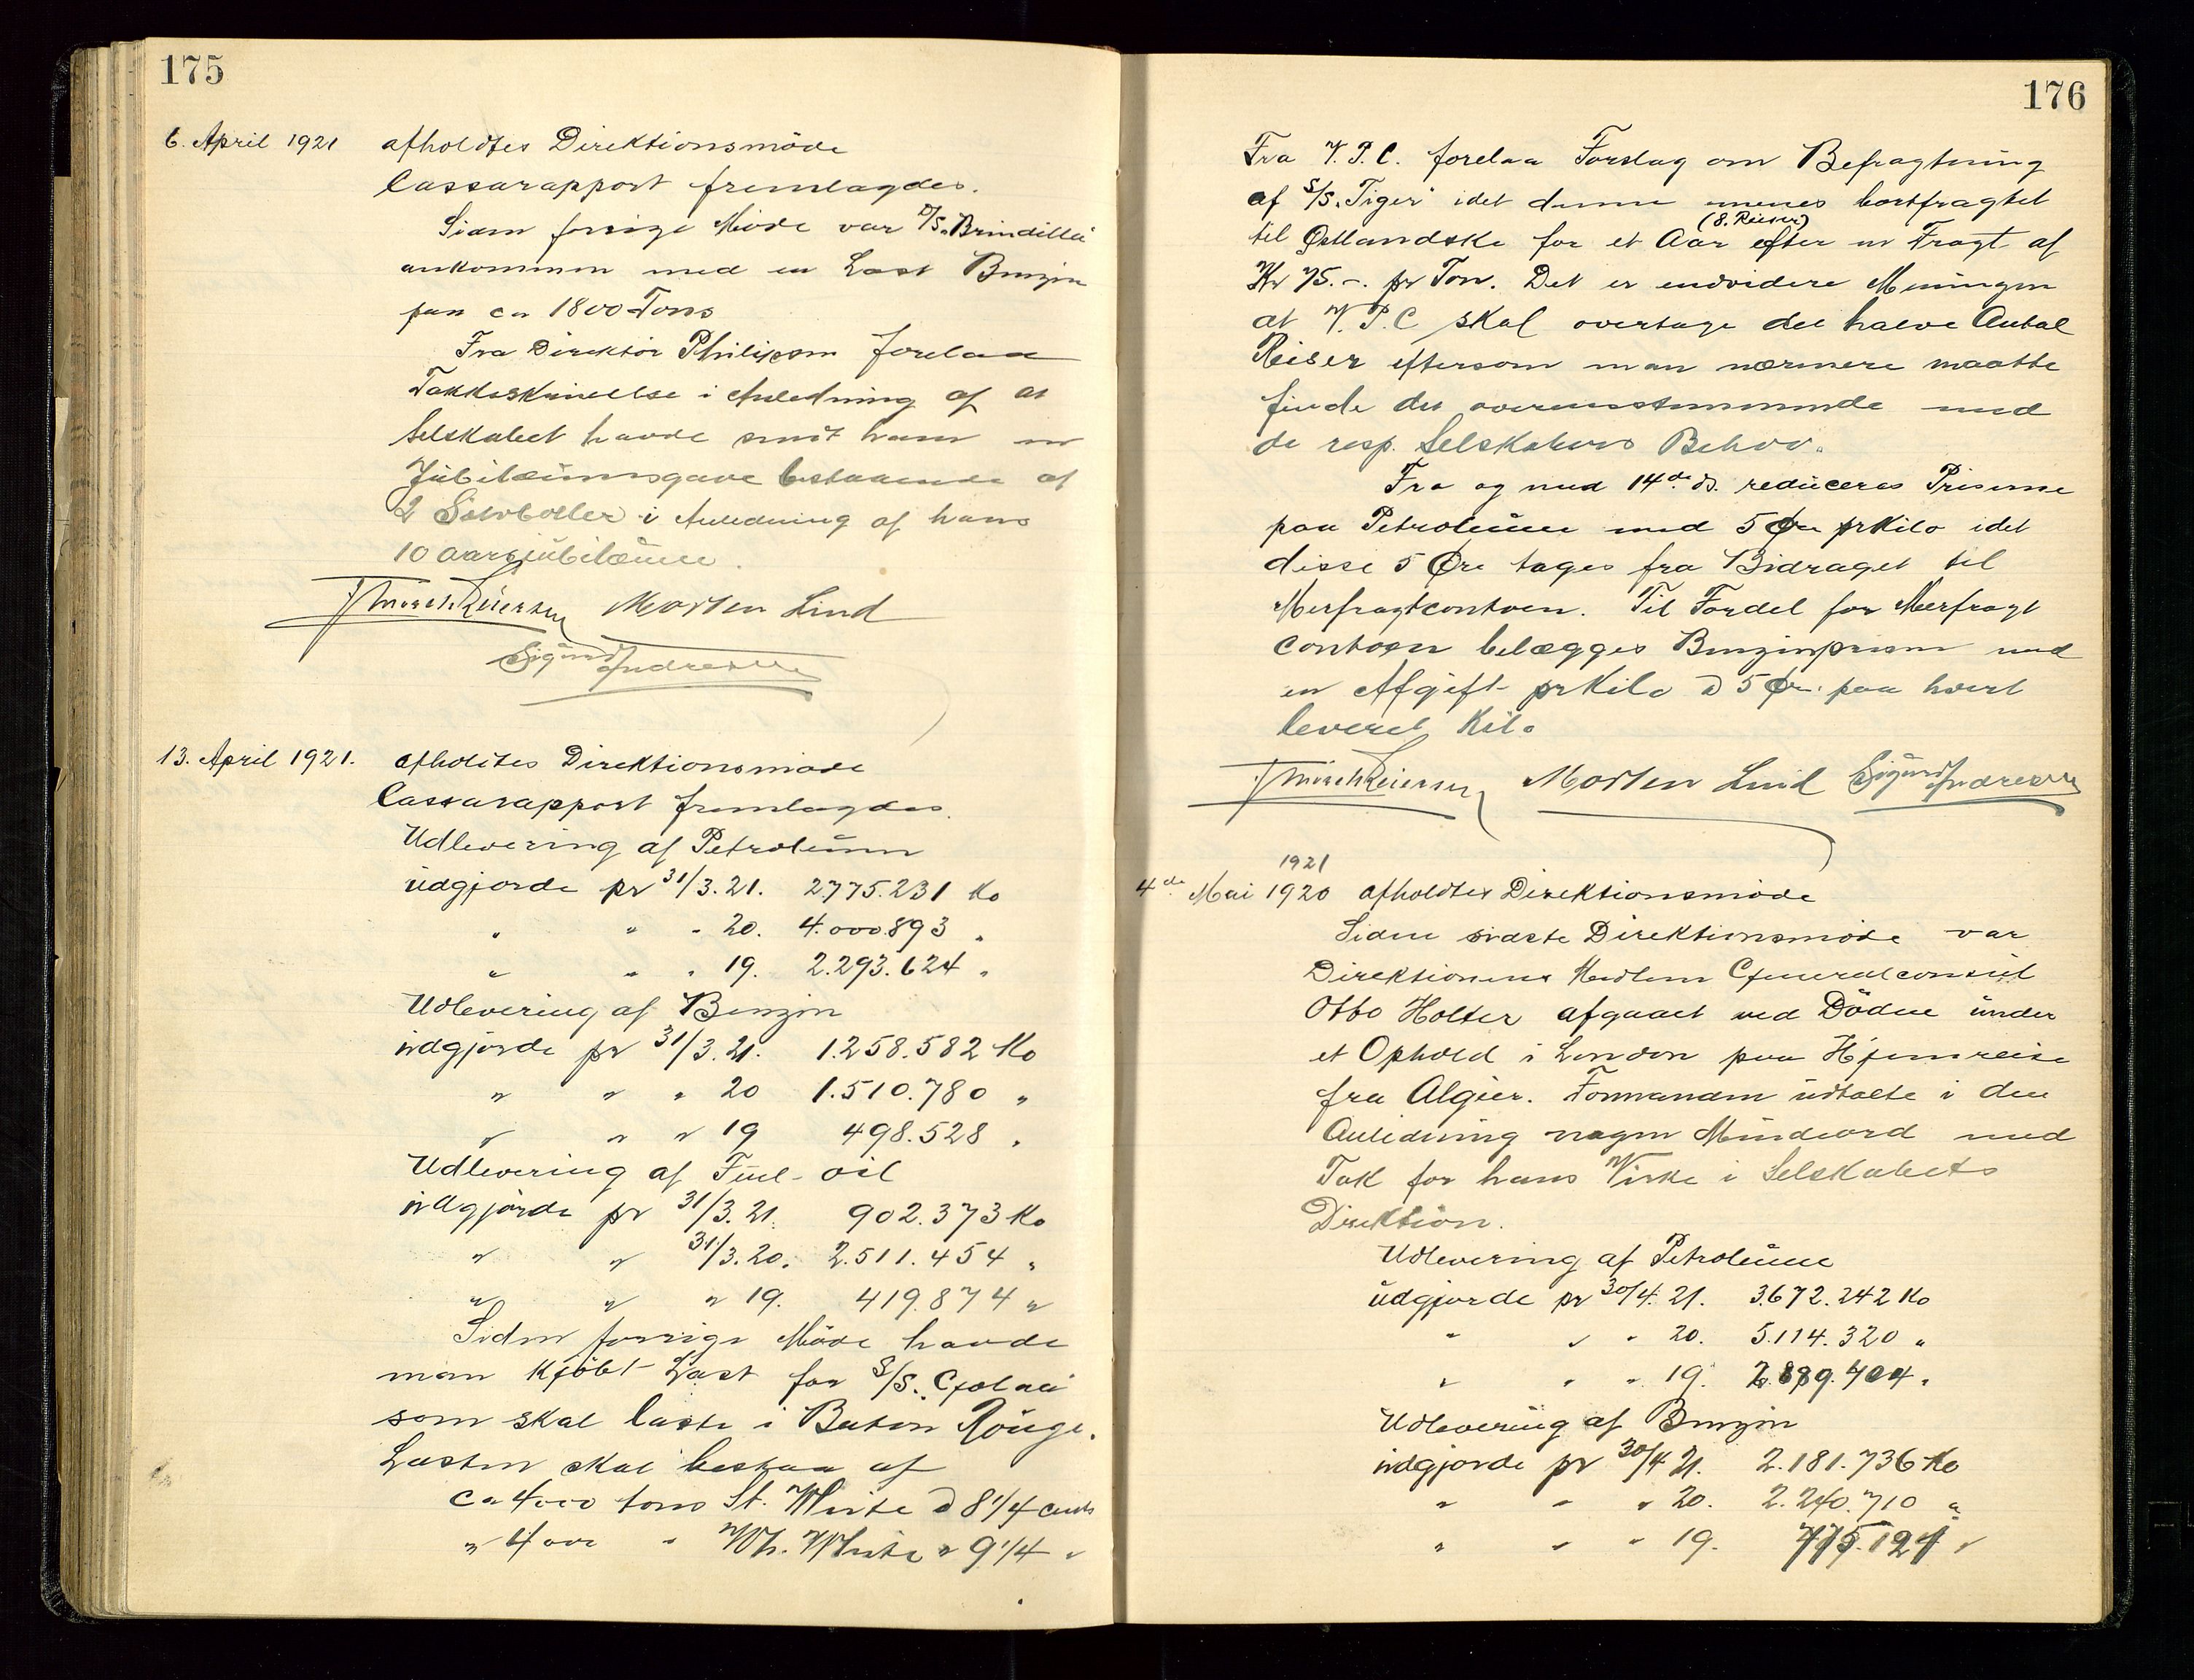 175
6. April 1921 afholdtes Direktionsmöde
Cassarapport fremlagdes.
Siden forrige Möde var T/S. "Brindilla"
ankommen med en Last Benzin
paa ca 1800 Tons
Fra Direktör Philipson forelaa
Takkeskrivelse i Anledning af at
Selskabet havde sendt ham en
Jubilæumsgave bestaaende af
2 Sölvboller i Anledning af hans
10 aarsjubilæum.
Morten Lind
Sigurd Andresen
13. April 1921. afholdtes Direktionsmöde
Cassarapport fremlagdes.
Udlevering af Petroleum
udgjorde pr 31/3.21. 2.775.231 Ko
" " " 20. 4.000.893 "
" " " 19. 2.293.624 "
Udlevering af Benzin
udgjorde pr 31/3.21. 1.258.582 Ko
" " " 20 1.510.780 "
" " " 19 498.528 "
Udlevering af Fuel-oil
udgjorde pr 31/3.21. 902.373 Ko
" " 31/3.20. 2.511.454 "
" " " 19. 419.874 "
Siden forrige Möde havde
man kjöbt Last for S/S.
som skal laste i Baton Rouge.
Lasten skal bestaa af
ca 4000 tons St. White a 8 1/4 cents
" 4000 " W. White " 9 1/4 "
176
Fra V.P.C. forelaa Forslag om Befragtning
af S/S. "Tiger" idet denne menes bortfragtet
(8. Reiser)
til Østlandske for et Aar efter en Fragt af
Kr 75.-. pr Ton. Det er endvidere Meningen
at V.P.C skal overtage det halve Antal
Reiser eftersom man nærmere maatte
finde det overensstemmende med
de resp. Selskabers Behov.
Fra og med 14de ds. reduceres Priserne
paa Petroleum med 5 Øre pr Kilo idet
disse 5 Øre tages fra Bidraget til
Merfragtcontoen. Til Fordel for Merfragt
contoen belægges Benzinprisen med
en Afgift pr Kilo a 5 Øre paa hvert
leveret Kilo
Morten Lind Sigurd Andresen
1921
4de Mai 1920 afholdtes Direktionsmöde
Siden sidste Direktionsmöde var
Direktionens Medlem Generalconsul
Otto Holter afgaaet ved Döden under
et Ophold i London paa Hjemreise
fra Algier. Formanden udtalte i den
Anledning nogen Mindeord med
Tak for hans Virke i Selskabets
Direktion.
Udlevering af Petroleum
udgjorde pr 30/4.21. 3.672.242 Ko
" " " 20. 5.114.320 "
" " " 19.
Udlevering af Benzin
udgjorde pr 30/4 21. 2.181.736 Ko
" " " 20. 2.240.710 "
" " " 19.